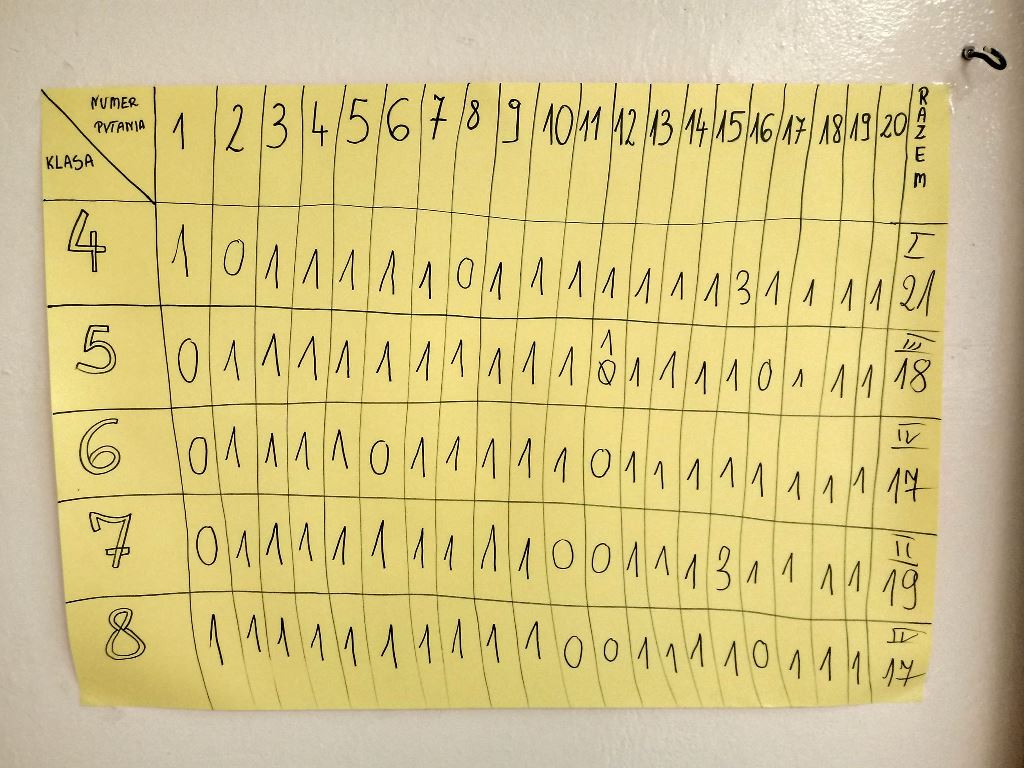 NUMER
PYTANIA
KLASA
1 2 3 4 5 6 7 8 9 10 11 12 13 14 15 16 17 18 19 20 RAZEM
I
4 1 0 1 1 1 1 1 0 1 1 1 1 1 1 1 3 1 1 1 1 21
1 III
5 0 1 1 1 1 1 1 1 1 1 1 0 1 1 1 1 0 1 1 1 18
IV
6 0 1 1 1 1 0 1 1 1 1 1 0 1 1 1 1 1 1 1 1 17
II
7 0 1 1 1 1 1 1 1 1 1 0 0 1 1 1 3 1 1 1 1 19
IV
8 1 1 1 1 1 1 1 1 1 1 0 0 1 1 1 1 0 1 1 1 17